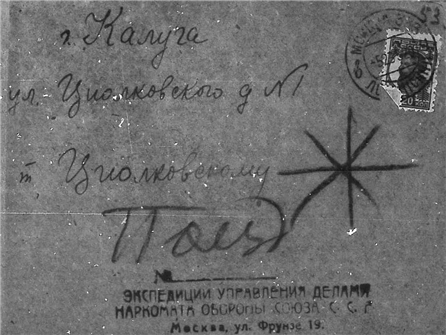 г. Калуга
ул. Циолковского д №1
т. Циолковскому
№
ЭКСПЕДИЦИИ УПРАВЛЕНИЯ ДЕЛАМИ
НАРКОМАТА ОБОРОНЫ СОЮЗА С. С. Р
Москва, ул. Фрунзе 19.
20